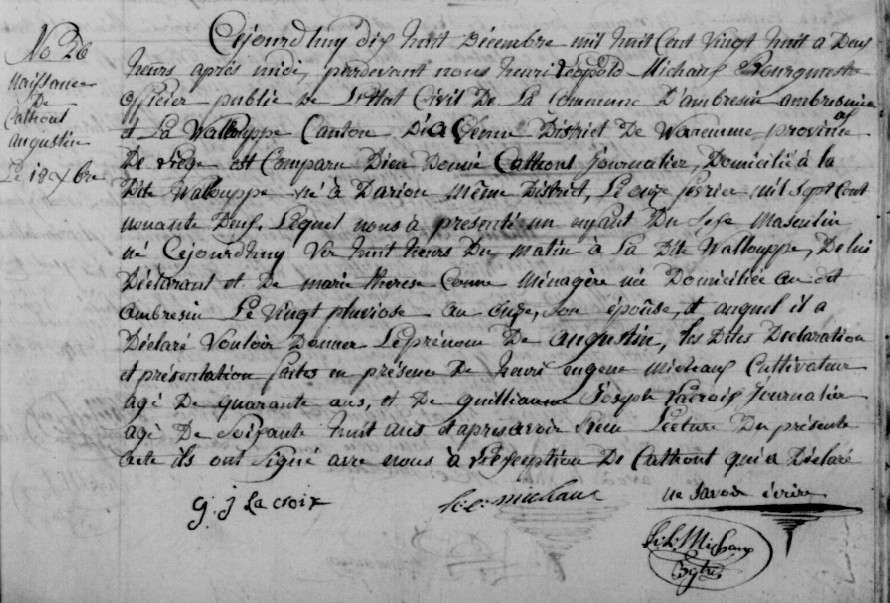 No 26
Naissance
De
Cathont
Augustin
Le 18 Xbre
Cejourdhuy dix huit Décembre mil huit Cent vingt huit a Deux
heurs après midi, pardevant nous henri Léopold Michaux Bourgmestre
officier public De L'Etat Civil De La Commune D'ambresin ambresinia
et La Wallouppe Canton District De Waremme province
De Liége est Comparu Dieu Donné Cathont Journalier, Domicilié à la
Dite Wallouppe né à Darion même District, Le onze fevrier mil Sept Cent
nonante Deux, Lequel nous à présenté un enfant Du Sexe Masculin
né Cejourdhuy Ver huit heurs Du matin à La Dite Wallouppe, De lui
Déclarant et De marie therese Ménagère née Domiciliée au dit
ambresin Le vingt pluviose an onze, son épouse, et auquel il a
Déclaré Vouloir Donner Le prénom De augustin, les Dites Declaration
et présentation faites en présence De henri eugene Michaux Cultivateur
agé De quarante ans, et De guilliaume Joseph Lacroix Journalier
agé De Soixante huit ans et après avoir Lecture Du présente
acte ils ont Signé avec nous à L'Exception De Cathont qui a Déclaré
ne Savoir écrire
g. j Lacroix
h: e: michaux
h: L: Michaux
Bgtre